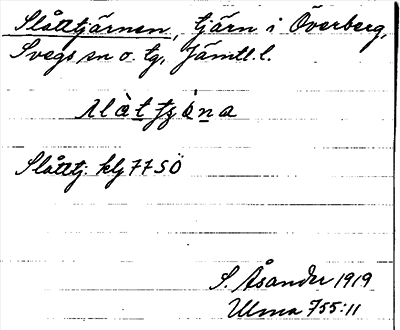 Slåttjärnen, tjärn i Överberg,
Svegs sn o. tg, Jämtl. l.
Slåttj: klj 77 SÖ
S. Åsander 1919
Ulma 755:11